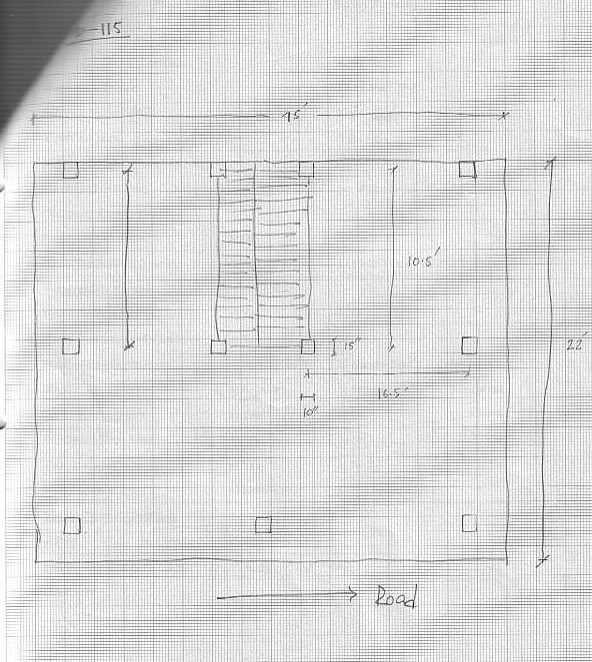 115
45'
10.5'
15"
22'
16.5'
10"
Road